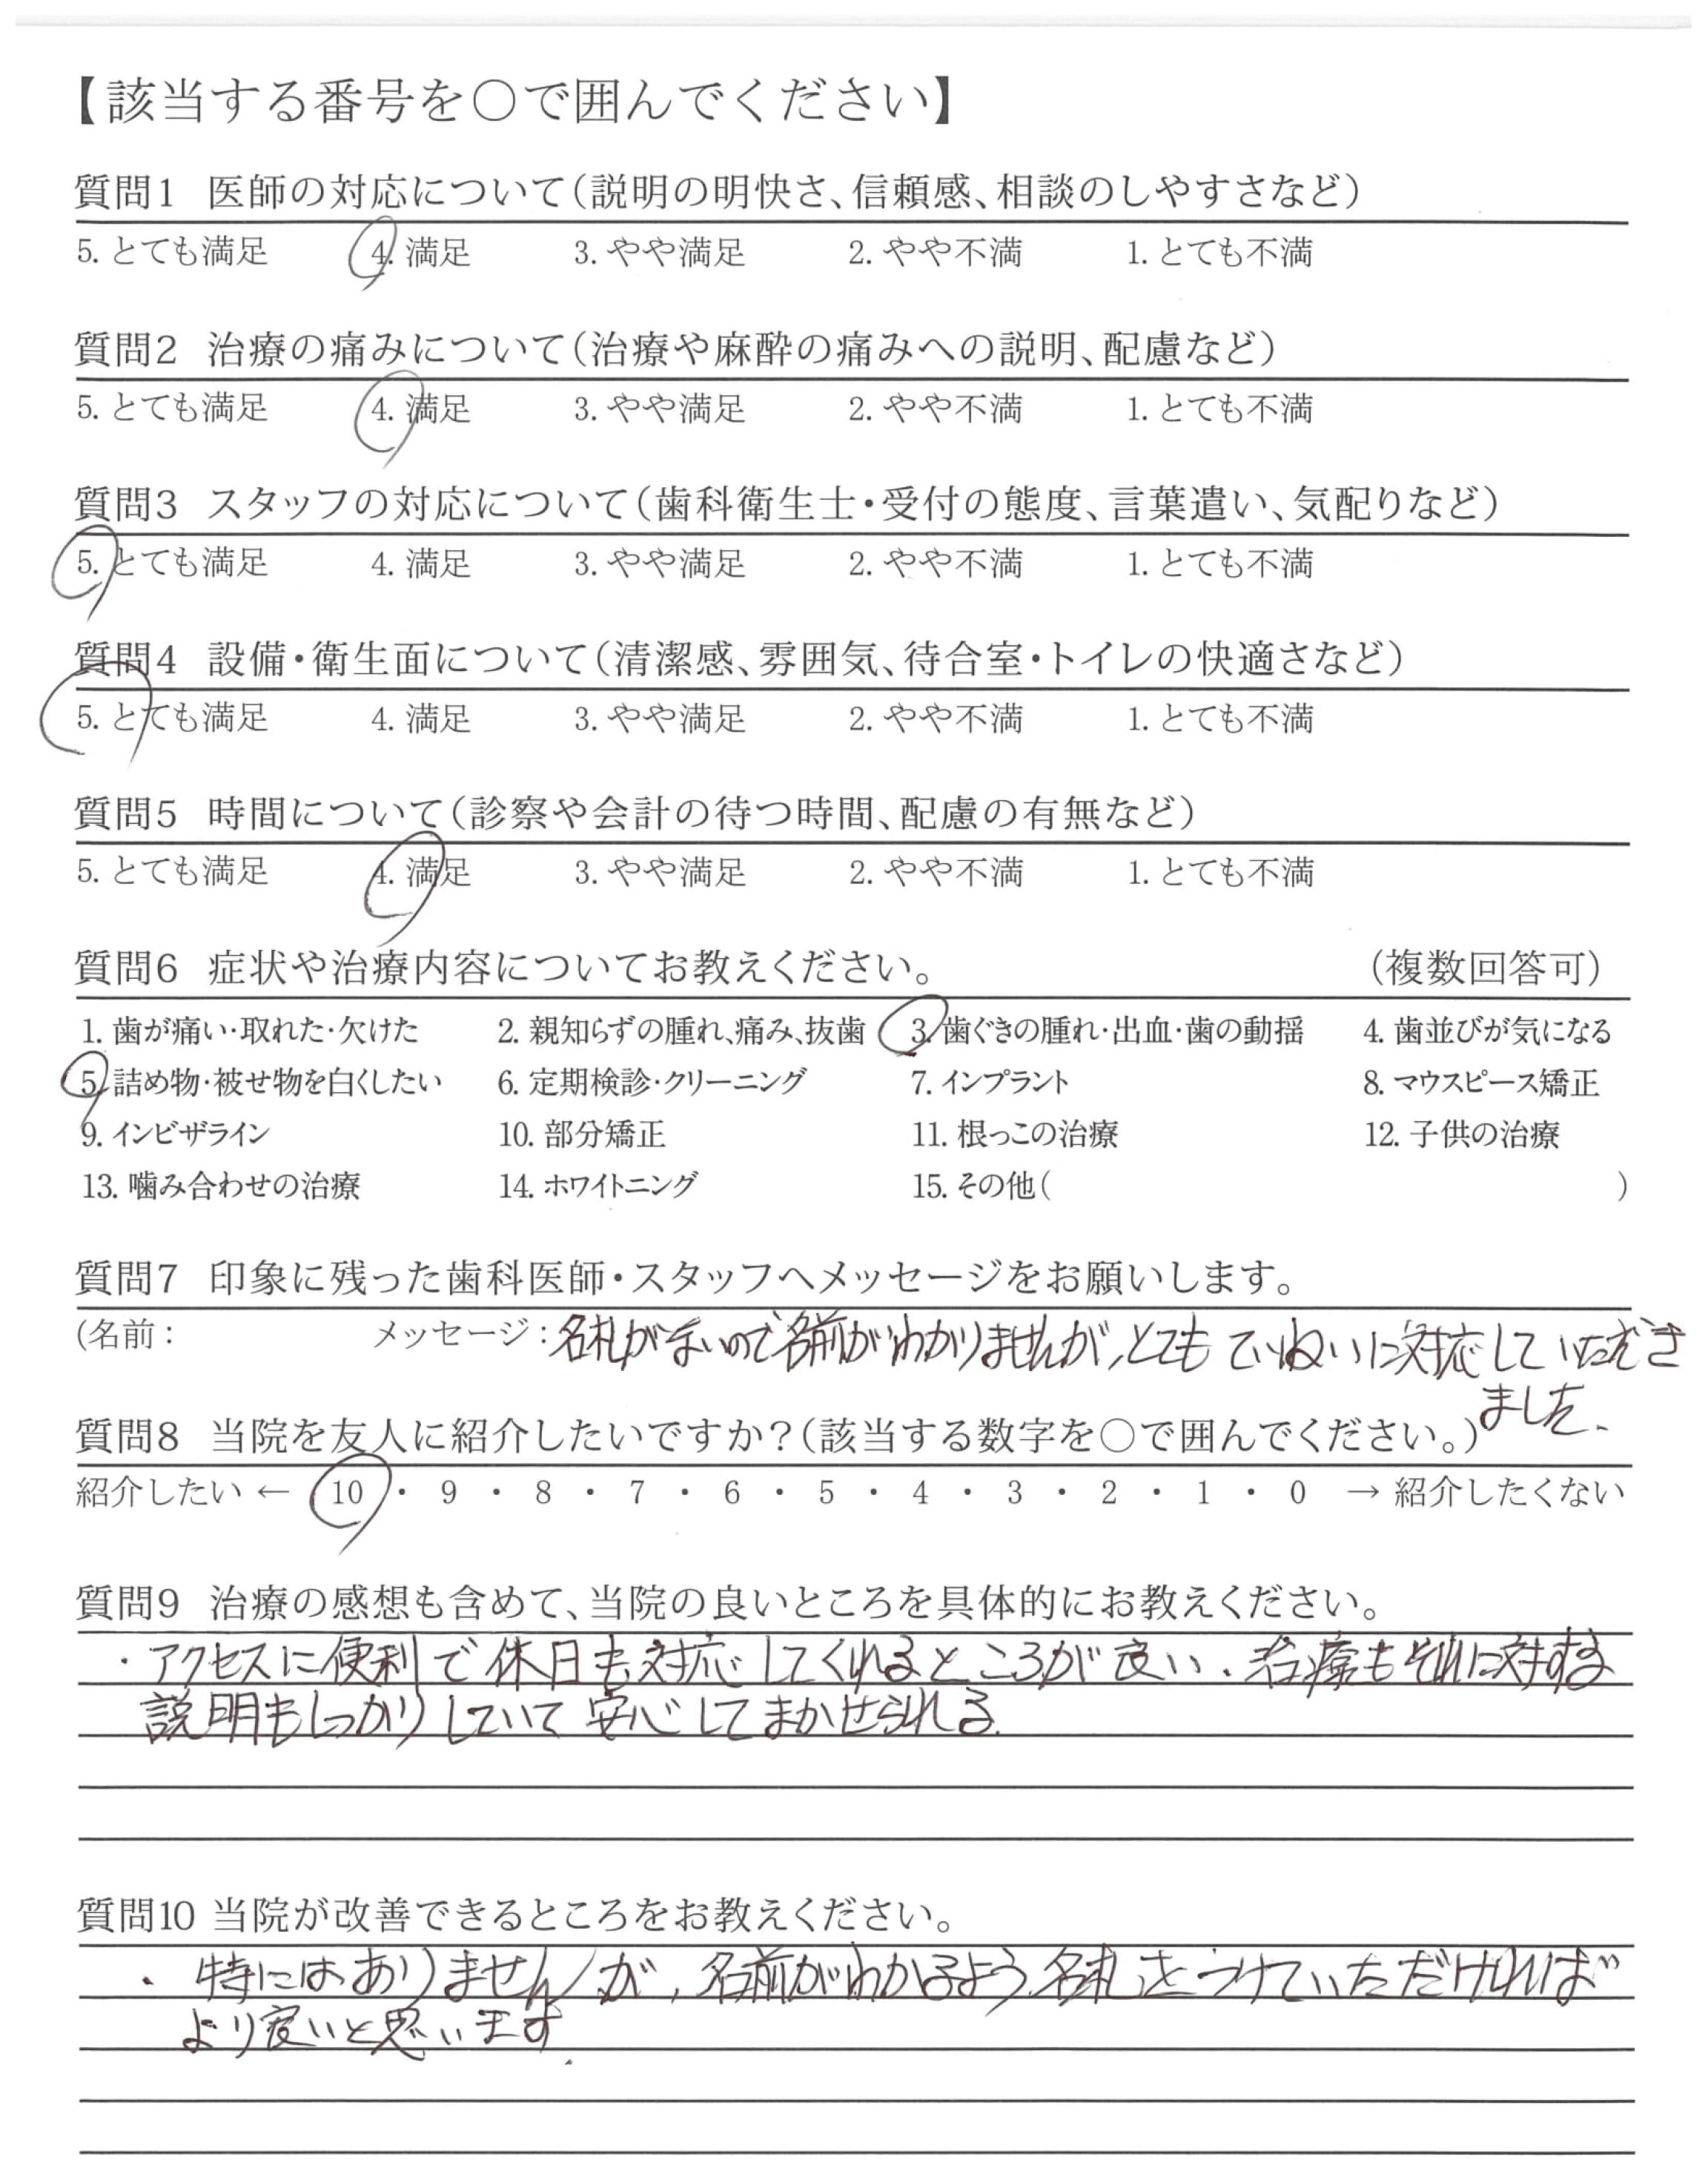 【該当する番号を〇で囲んでください】
質問1 医師の対応について(説明の明快さ、信頼感、相談のしやすさなど)
5. とても満足 4. 満足 3. やや満足 2. やや不満 1. とても不満
質問2 治療の痛みについて(治療や麻酔の痛みへの説明、配慮など)
5. とても満足 4. 満足 3. やや満足 2. やや不満 1. とても不満
質問3 スタッフの対応について(歯科衛生士・受付の態度、言葉遣い、気配りなど)
5. とても満足 4. 満足 3. やや満足 2. やや不満 1. とても不満
質問4 設備・衛生面について(清潔感、雰囲気、待合室・トイレの快適さなど)
5. とても満足 4. 満足 3. やや満足 2. やや不満 1. とても不満
質問5 時間について(診察や会計の待つ時間、配慮の有無など)
5. とても満足 4. 満足 3. やや満足 2. やや不満 1. とても不満
質問6 症状や治療内容についてお教えください。 (複数回答可)
1. 歯が痛い・取れた・欠けた 2. 親知らずの腫れ、痛み、抜歯 3. 歯ぐきの腫れ・出血・歯の動揺 4. 歯並びが気になる
5. 詰め物・被せ物を白くしたい 6. 定期検診・クリーニング 7. インプラント 8. マウスピース矯正
9. インビザライン 10. 部分矯正 11. 根っこの治療 12. 子供の治療
13. 噛み合わせの治療 14. ホワイトニング 15. その他( )
質問7 印象に残った歯科医師・スタッフへメッセージをお願いします。
(名前: メッセージ:名札がないので名前がわかりませんが、とてもていねいに対応していただき
ました。
質問8 当院を友人に紹介したいですか?(該当する数字を〇で囲んでください。)
紹介したい ← 10 ・ 9 ・ 8 ・ 7 ・ 6 ・ 5 ・ 4 ・ 3 ・ 2 ・ 1 ・ 0 → 紹介したくない
質問9 治療の感想も含めて、当院の良いところを具体的にお教えください。
・アクセスに便利で休日も対応してくれるところが良い。治療もそれに対する
説明もしっかりしていて安心してまかせられる。
質問10 当院が改善できるところをお教えください。
・特にはありませんが、名前がわかるよう名札をつけていただければ
より良いと思います。